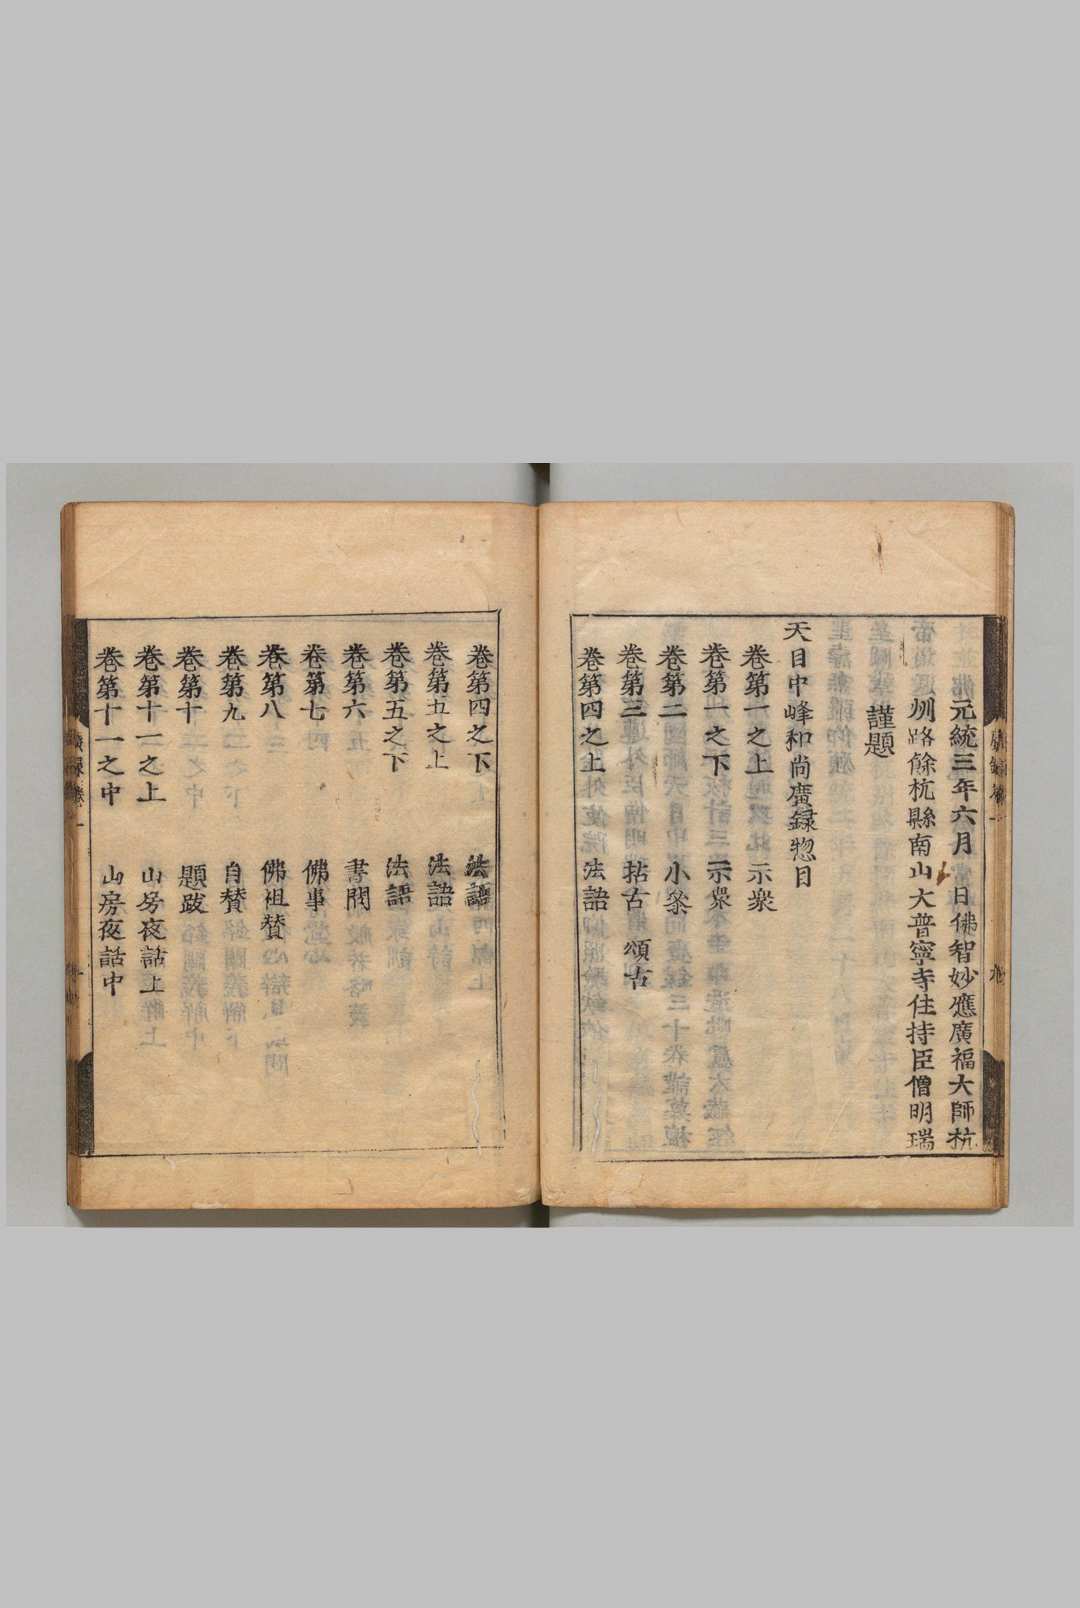 元統三年六月　日佛智妙應廣福大師杭
州路餘杭縣南山大普寧寺住持臣僧明瑞
謹題
天目中峰和尚廣錄惣目
卷第一之上　示衆
卷第一之下　示衆
卷第二　小叅
卷第三　拈古　頌古
卷第四之上　法語
卷第四之下　法語
卷第五之上　法語
卷第五之下　法語
卷第六　書問
卷第七　佛事
卷第八　佛祖賛
卷第九　自賛
卷第十　題跋
卷第十一之上　山房夜話上
卷第十一之中　山房夜話中